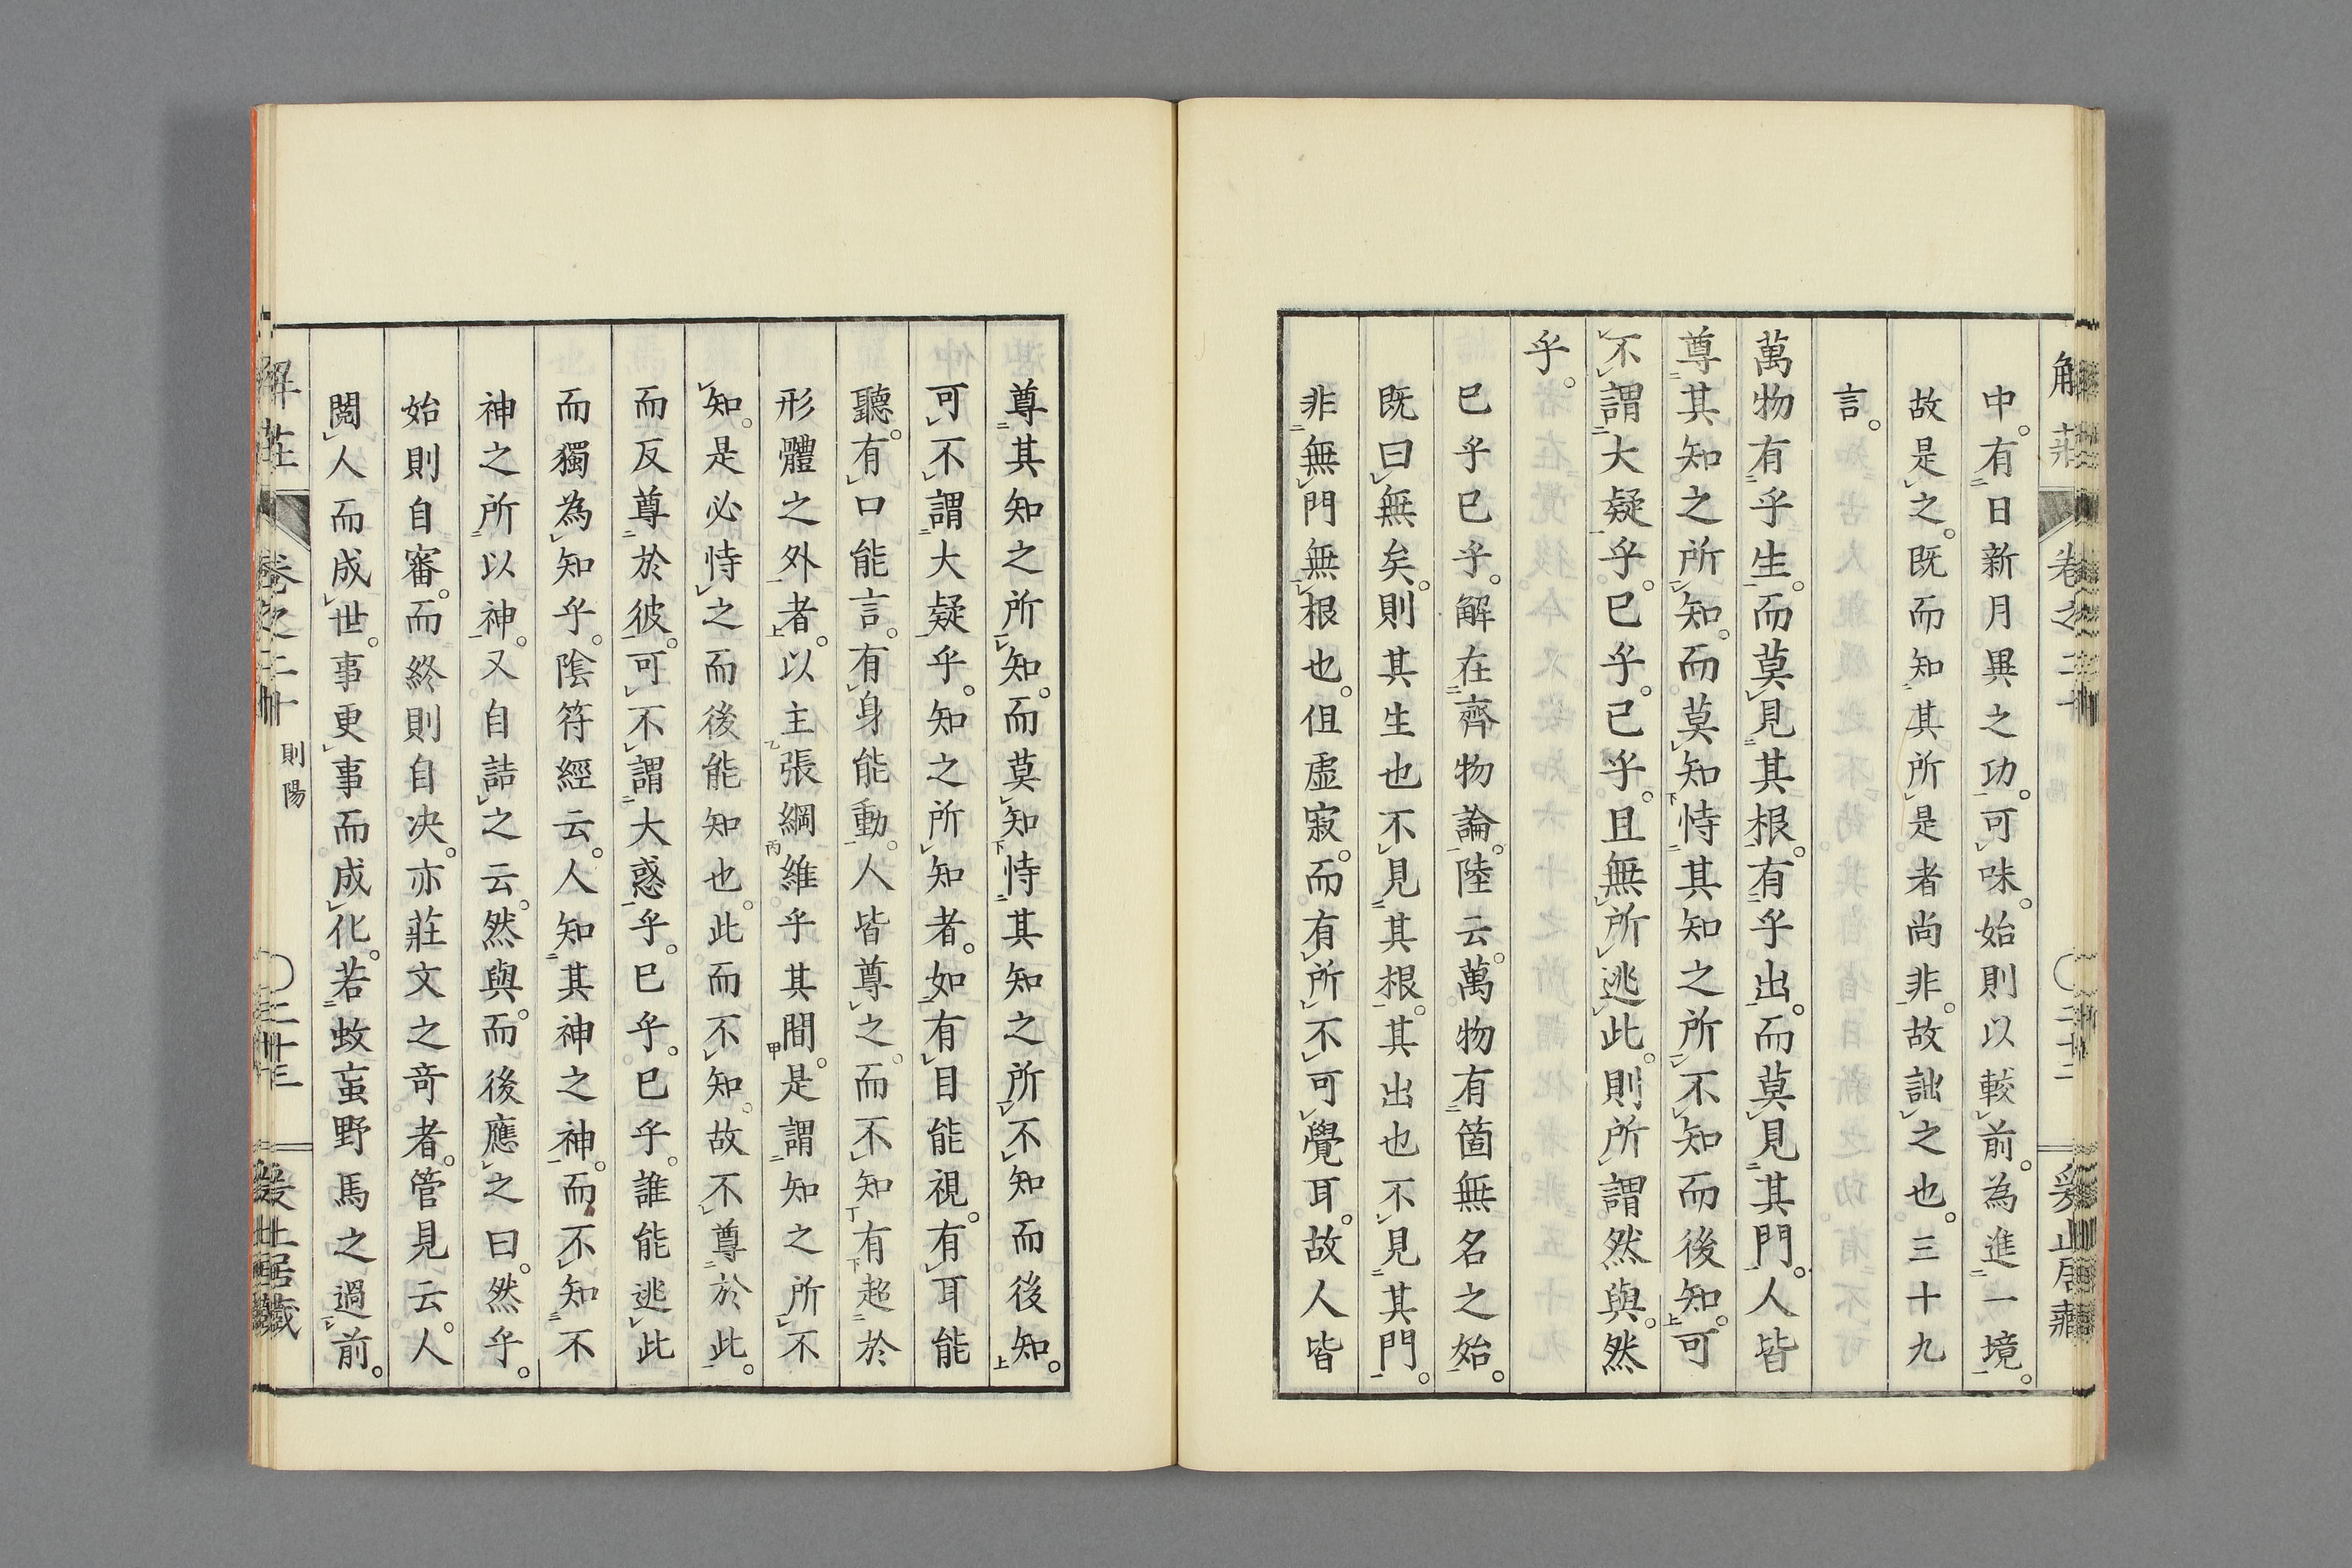 解莊 卷之二十 二十二 爰止居藏
中。有日新月異之功。可味。始則以較前。為進一境。
故是之。既而知其所是者尚非。故詘之也。三十九
言。
萬物有乎生。而莫見其根。有乎出。而莫見其門。人皆
尊其知之所知。而莫知恃其知之所不知而後知。可
不謂大疑乎。已乎。已乎。且無所逃此。則所謂然與。然
乎。
已乎已乎。解在齊物論。陸云。萬物有箇無名之始。
既曰無矣。則其生也不見其根。其出也不見其門。
非無門無根也。但虛寂。而有所不可覺耳。故人皆
尊其知之所知。而莫知恃其知之所不知而後知。
可不謂大疑乎。知之所知者。如有目能視。有耳能
聽。有口能言。有身能動。人皆尊之。而不知有超於
形體之外者。以主張綱維乎其間。是謂知之所不
知。是必恃之而後能知也。此而不知。故不尊於此。
而反尊於彼。可不謂大惑乎。已乎。已乎。誰能逃此
而獨為知乎。陰符經云。人知其神之神。而不知不
神之所以神。又自詰之云。然與。而後應之曰。然乎。
始則自審。而終則自决。亦莊文之竒者。管見云。人
閱人而成世。事更事而成化。若蚊䖟野馬之過前。
解莊 卷之二十 則陽 二十三 爰止居藏